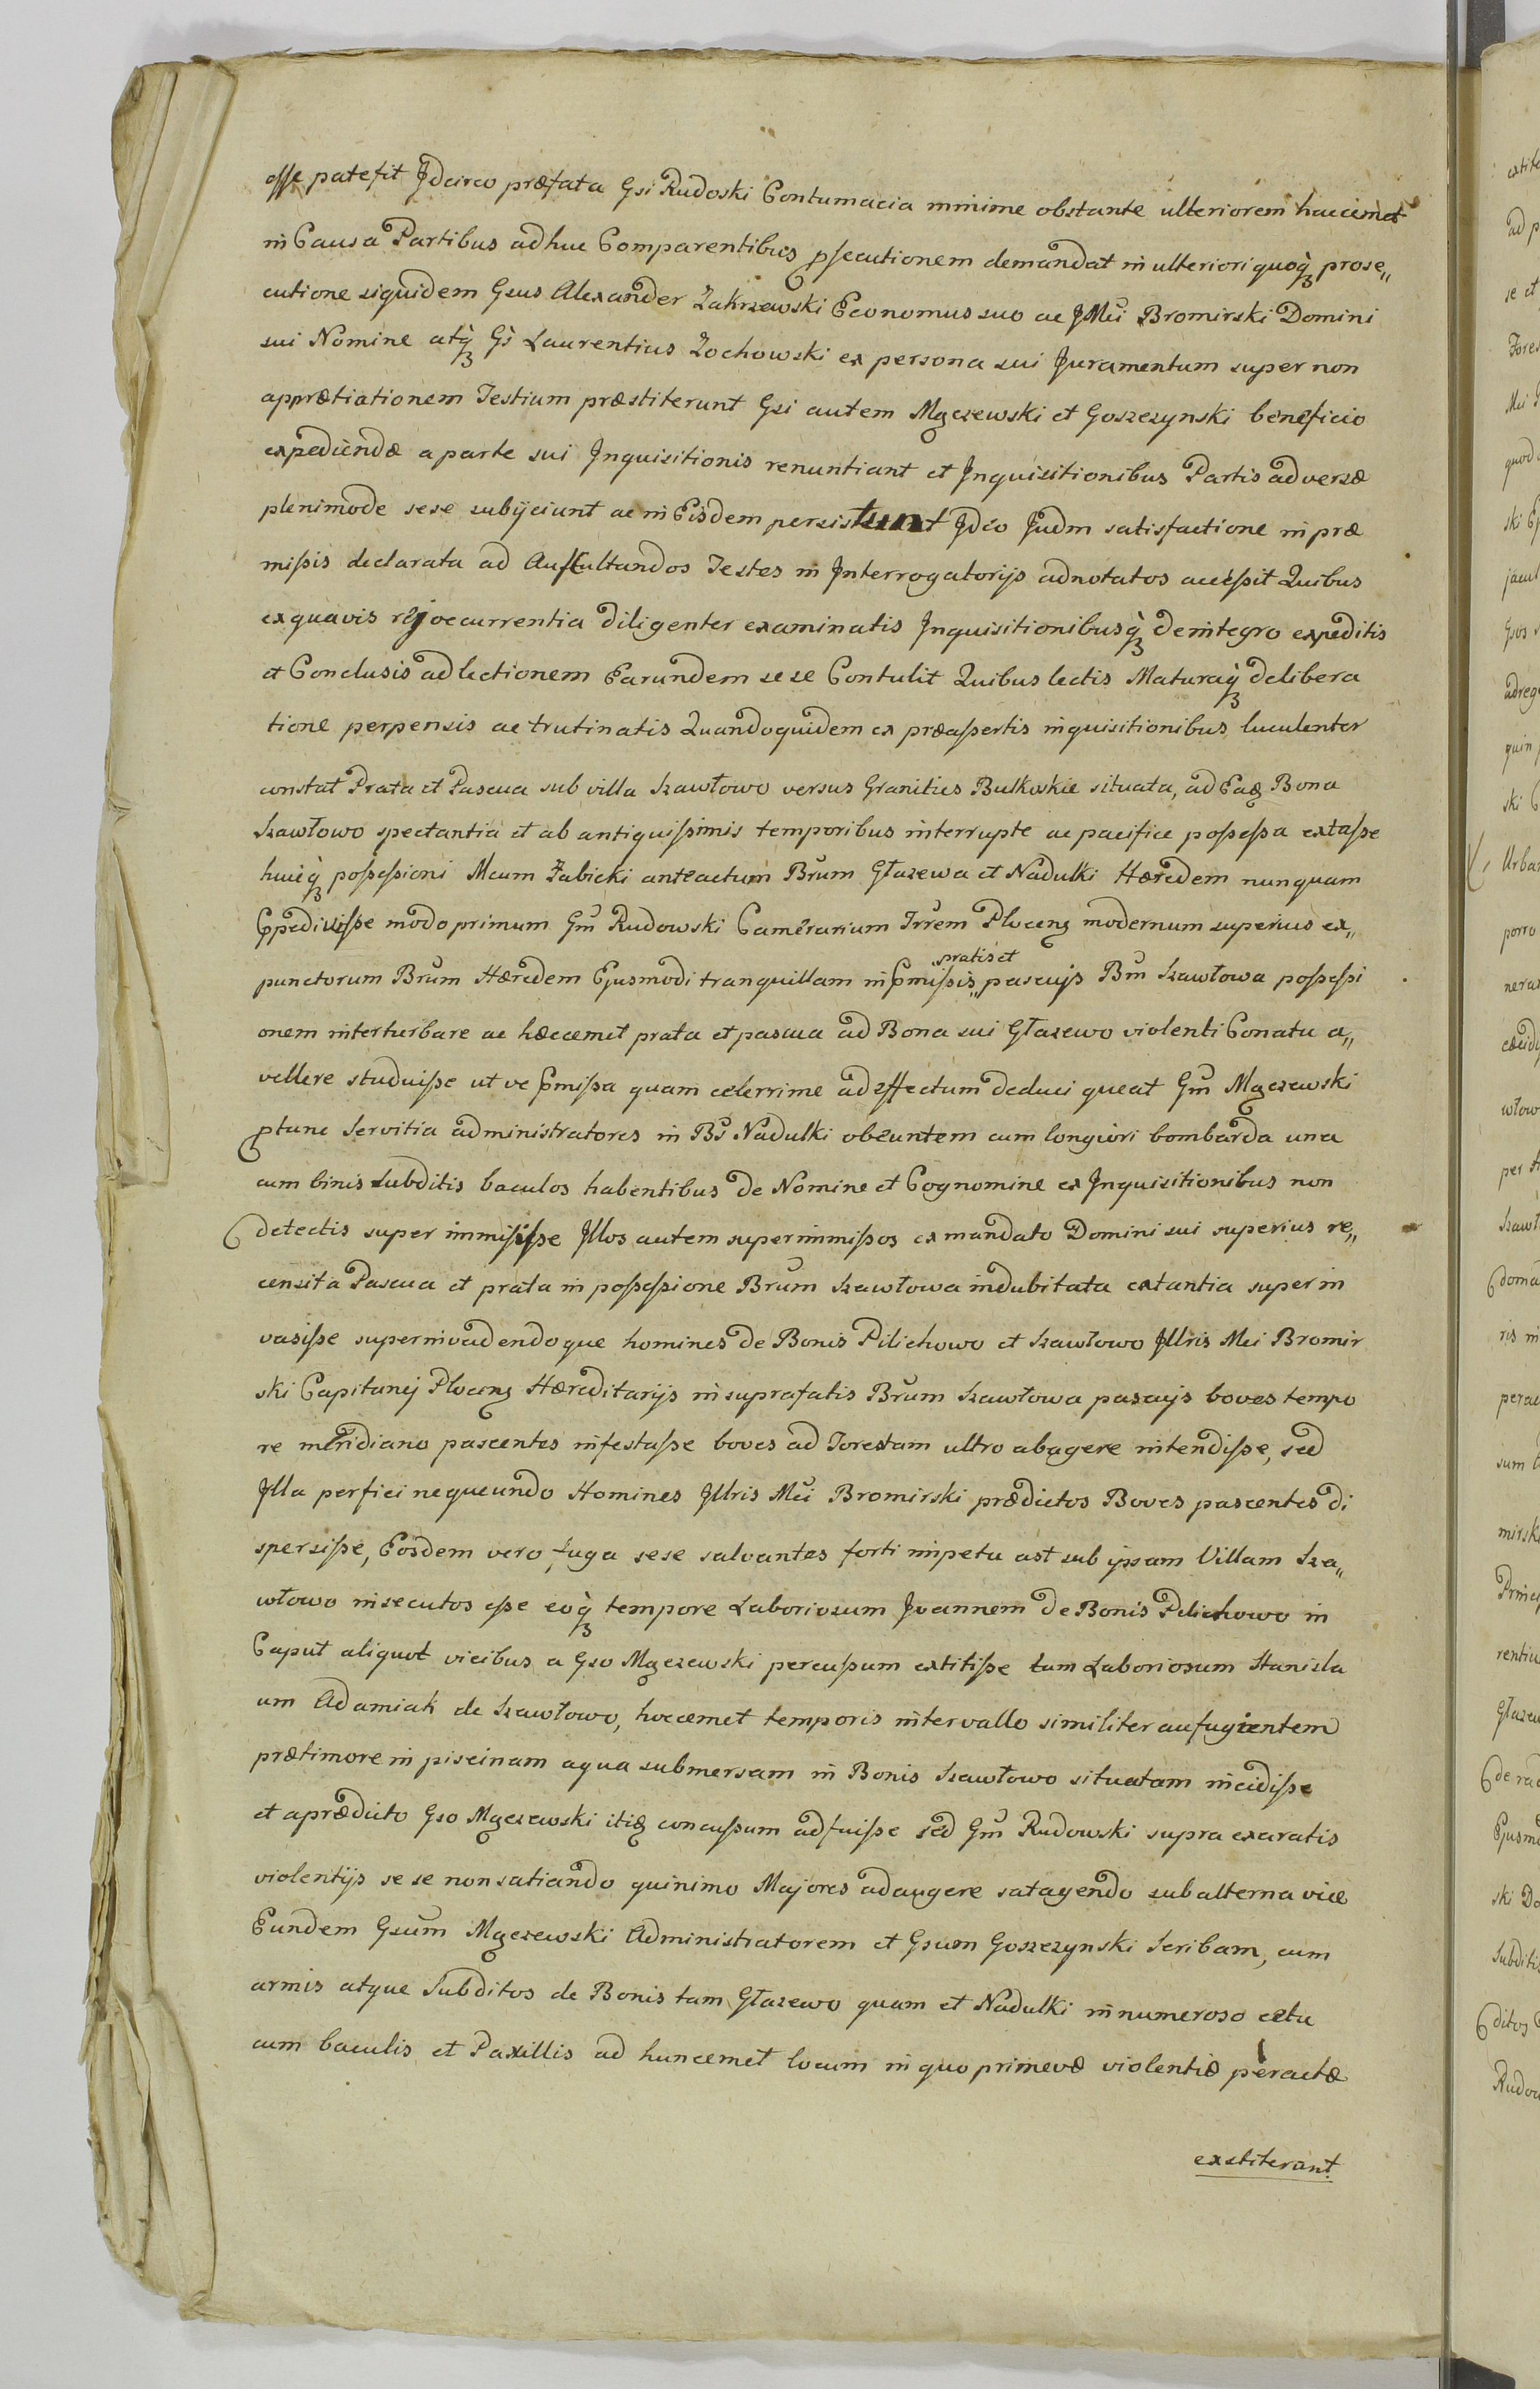 esse patefit Jdcirco præfata Gsi Rudoski Contumacia minime obstante ulteriorem haccemet
in Causa Partibus adhuc Comparentibus psecutionem demandat in ulteriori quoq3 prose„
cutione siquidem Gsus Alexander Zakrzewski Economus suo ac JMci Bromirski Domini
sui Nomine atq3 Gs Laurentius Zochowski ex persona sui Juramentum super non
apprætiationem Testium præstiterunt Gsi autem Mgczewski et Goszczynski beneficio
expediendæ a parte sui Jnquisitionis renuntiant et Jnquisitionibus Partis adversæ
plenimode sese subijciunt ac in Eisdem persistunt Jdeo Judm satisfactione in præ
missis declarata ad Auscultandos Testes in Jnterrogatorijs adnotatos accessit Quibus
ex quavis rej occurrentia diligenter examinatis Jnquisitionibusq3 de integro expeditis
et Conclusis ad lectionem Earundem sese Contulit Quibus lectis Maturaq3 delibera
tione perpensis ac trutinatis Quandoquidem ex præassertis inquisitionibus luculenter
constat Prata et Pascua sub villa Szawłowo versus Granities Bulkoskie situata, ad Eadem Bona
Szawłowo spectantia et ab antiquissimis temporibus interrupte ac pacifice possessa extasse
huicq3 possessioni Mcum Zabicki anteactum Brum Głazewa et Nadulki Hæredem nunquam
Ppedivisse modo primum Gm Rudowski Camerarium Trrem Plocens modernum superius ex„
punctorum Brum Hæredem Ejusmodi tranquillam in Pmissis„ pratis et pascujs Bm Szawłowa possessi
onem interturbare ac hæccemet prata et pascua ad Bona sui Głazewo violenti Conatu a„
vellere studuisse ut ve Pmissa quam celerrime ad effectum deduci queat Gm Mgczewski
ptunc Servitia administratores in Bs Nadulki obeuntem cum longiori bombarda una
cum binis Subditis baculos habentibus de Nomine et Cognomine ex Jnquisitionibus non
detectis super immisisse Jllos autem superimmissos ex mandato Domini sui superius re„
censita Pascua et prata in possessione Brum Szawłowa indubitata extantia super in
vasisse superinvadendoque homines de Bonis Pilichowo et Szawłowo Jllris Mci Bromir
ski Capitanej Plocens Hæreditarijs in suprafatis Brum Szawłowa pascujs boves tempo
re meridiano pascentes infestasse boves ad Forestam ultro abagere intendisse, sed
Jlla perfici nequeundo Homines Jllris Mci Bromirski prædictos Boves pascentes di
spersisse, Eosdem vero fuga sese salvantes forti impetu ast sub ipsam Villam Sza„
włowo insecutos esse eoq3 tempore Laboriosum Joannem de Bonis Pilichowo in
Caput aliquot vicibus a Gso Mgczewski percussum extitisse tum Laboriosum Stanisla
um Adamiak de Szawłowo, hoccemet temporis intervallo similiter aufugientem
prætimore in piscinam aqua submersam in Bonis Szawłowo situatam incidisse
et aprædicto Gso Mgczewski itidem concussum adfuisse sed Gm Rudowski supra exaratis
violentijs sese non satiando quinimo Majores adaugere satagendo sub alterna vice
Eundem Gsum Mgczewski Administratorem et Gsum Goszczynski Scribam, cum
armis atque Subditos de Bonis tam Głazewo quam et Nadulki in numeroso cætu
cum baculis et Paxillis ad huncemet locum in quo primevæ violentiæ peractæ
exstiterant